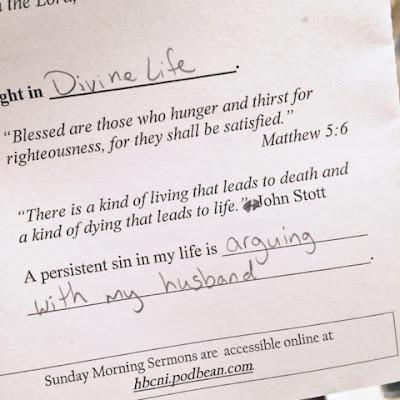 the Lord,
ght in Divine Life.
“Blessed are those who hunger and thirst for
righteousness, for they shall be satisfied.”
Matthew 5:6
“There is a kind of living that leads to death and
a kind of dying that leads to life.” John Stott
A persistent sin in my life is arguing
with my husband.
Sunday Morning Sermons are accessible online at
hbcni.podbean.com